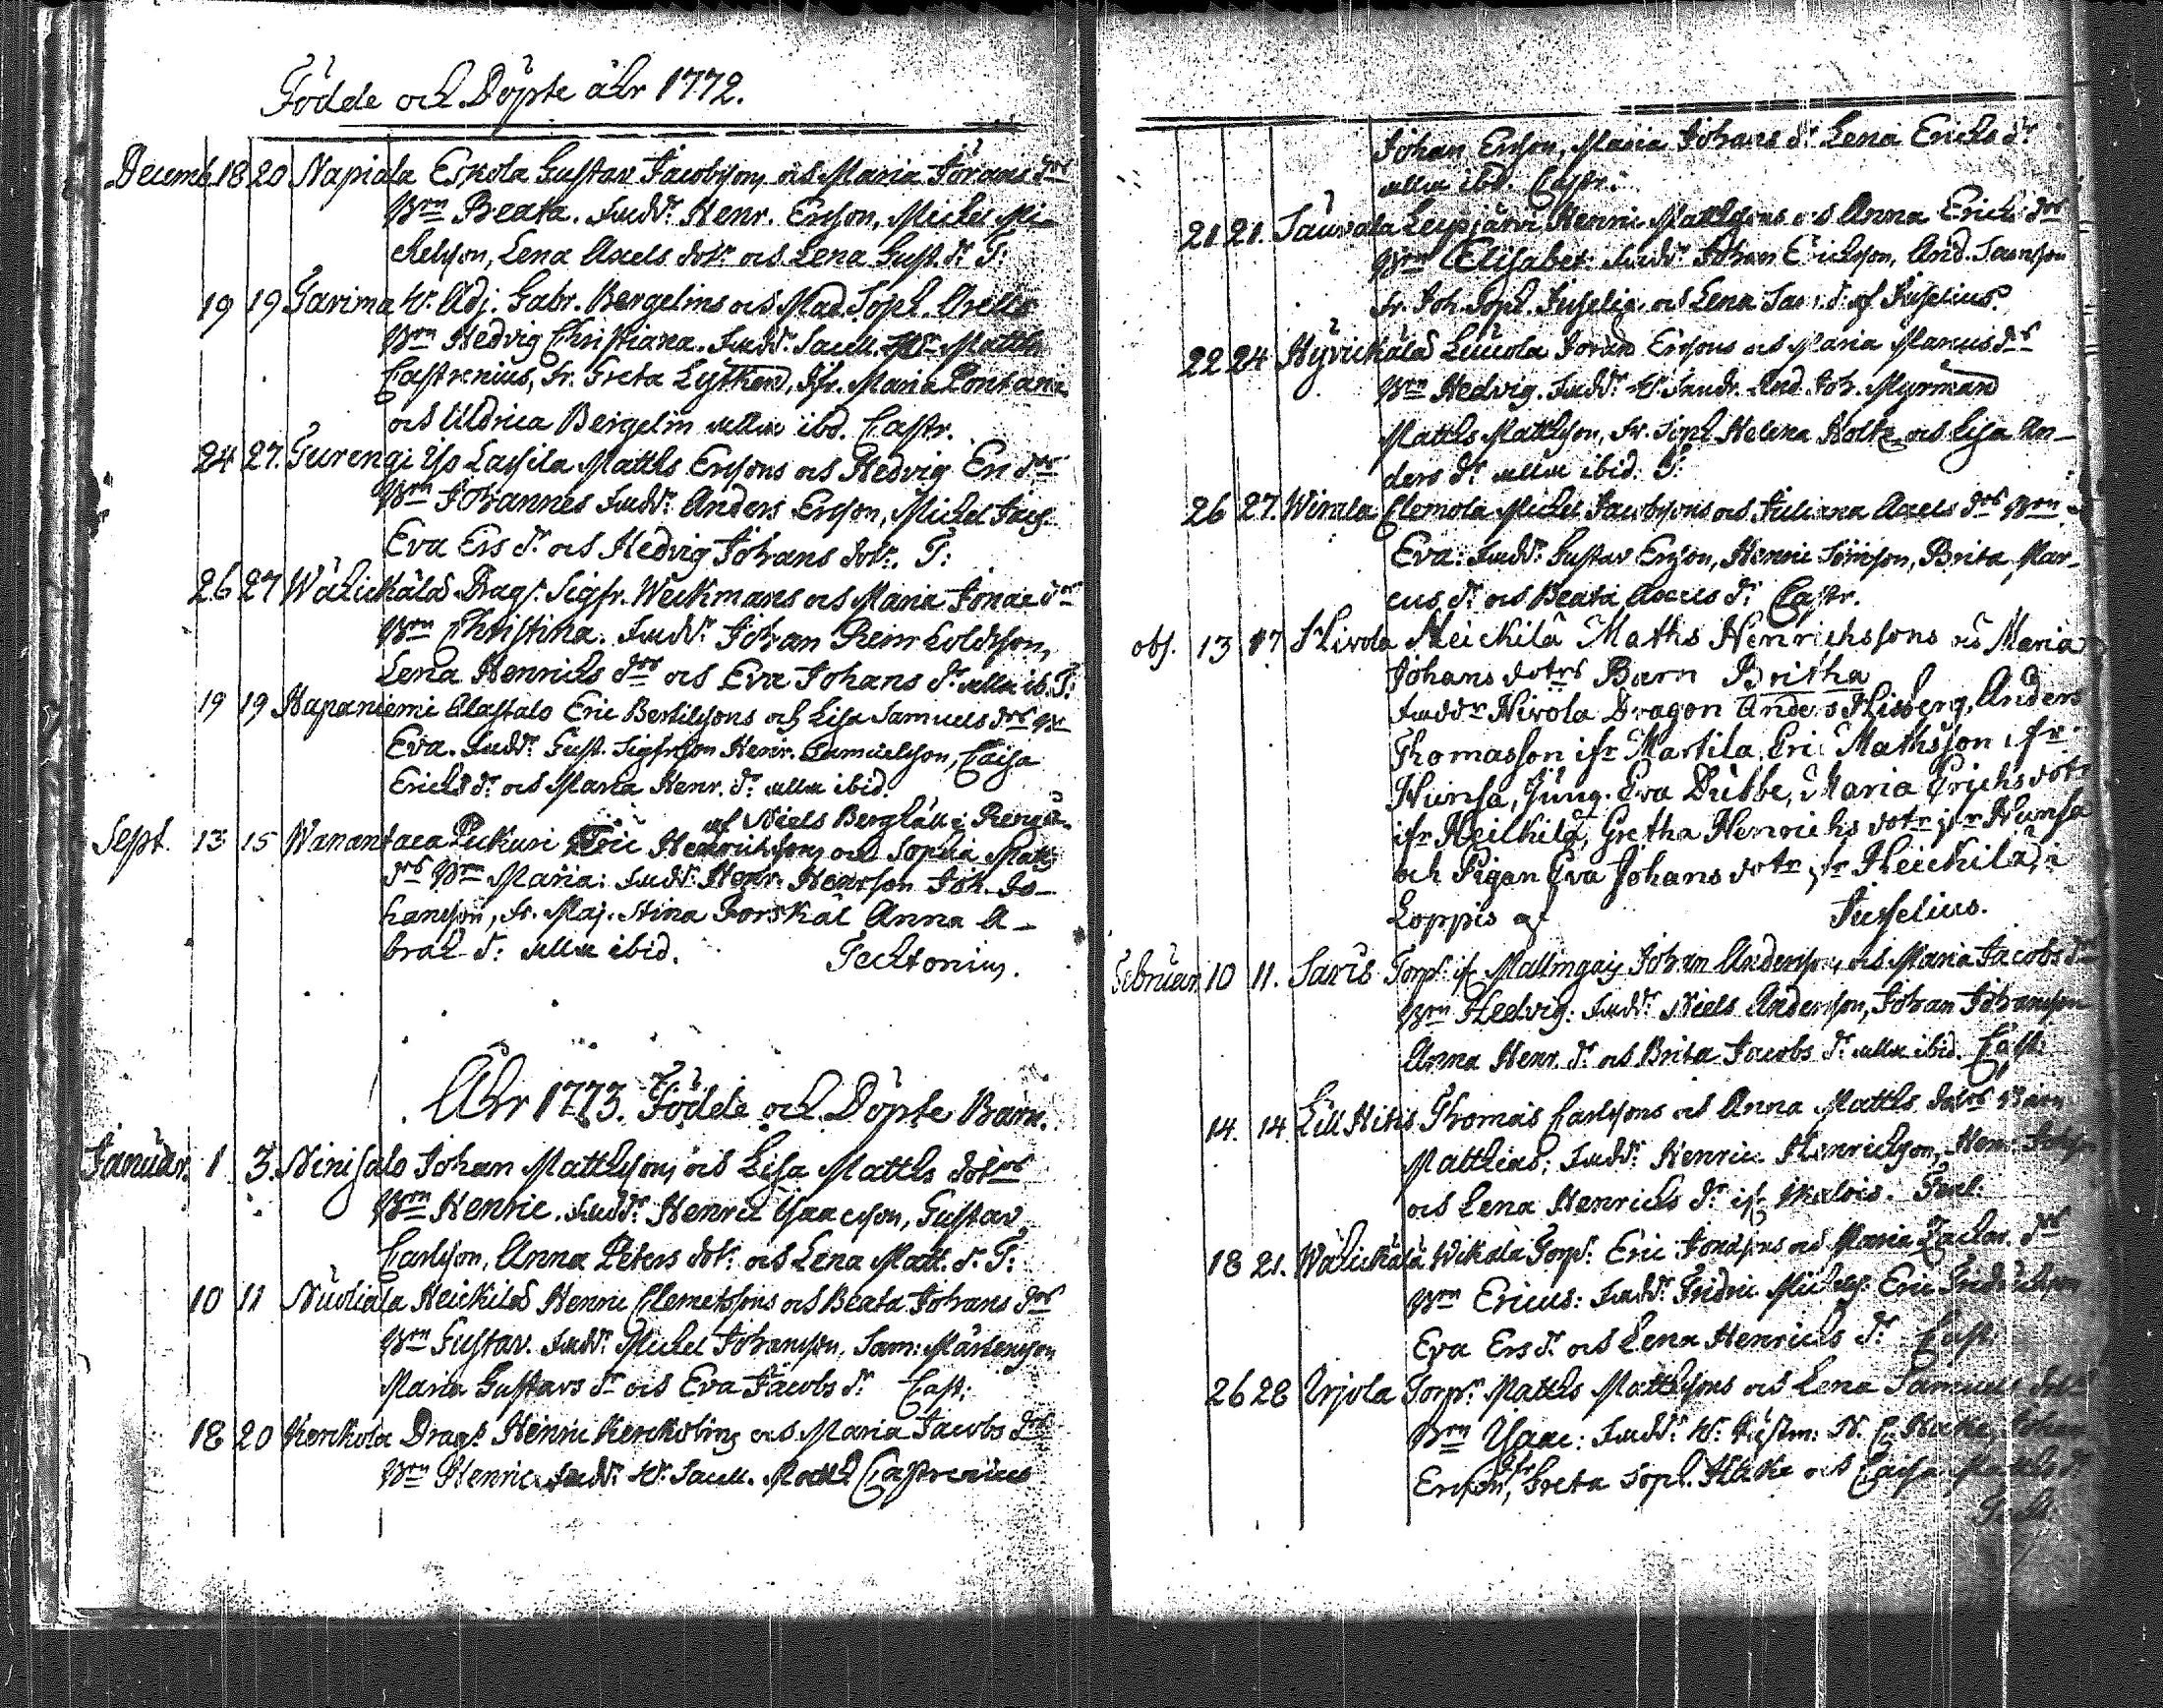 Födde och Döpte åhr 1772.
Decemb. 18 20 Napiala Eskola Gustav Jacobsons och Maria Görans drs
Brn Beata. Fadd. Henr. Ersson, Michel Mi-
chelsson, Lena Axels dotr och Lena Gust. dr T:
19 19 Tarima Hr. Adj. Gabr. Bergelins och Mad. Soph.
Brn Hedvig Christiana. Fadd. Matth.
Castrenius, Fr. Greta Lythen, Jfr. Maria Pontana
och Uldrica Bergelin alla ibd. Castr.
24 27. Turengi Yso Lassila Matths Erssons och Hedvig Eri drs
Brn Johannes Fadd. Anders Ersson, Michel
Eva Ers dr och Hedvig Johans dotr. T:
26 27 Wähickälä Drag. Sigfr. Weckmans och Maria Jonae drs
Brn Christina. Fadd. Johan Reinholdsson,
Lena Henrichs drs och Eva Johans dr alla ib. T:
19 19 Hapaniemi Alastalo Eric Bertilssons och Lisa Samuels drs Br
Eva. Fadd. Gust. Sigfrsson Henr. Samuelsson, Caisa
Erichs dr och Maria Henr. dr alla ibid.
af Niels Berglääi Renga.
Sept. 13 15 Wanantaca Pickuri Eric Henrichssons och Sophia Matts
drs Brn Maria: Fadd. Henr. Henrsson Joh. Jo-
hansson, Fr. Maj. Stina Forskål Anna A-
brah dr: alla ibid. Techtonius.
Åhr 1773. Födde och Döpte Barn.
Januar. 1 3. Ninisalo Johan Matthssons och Lisa Matths dotrs
Brn Henric. Fadd. Henric Ysaacsson, Gustav
Carlsson, Anna Peters dotr och Lena Matt. dr T:
10 11 Nuoliala Heickilä Henric Clemetssons och Beata Johans drs
Brn Gustav. Fadd. Michel Johansson, Sam: Mårtensson
Maria Gustavs dr och Eva Jacobs dr Cast.
18 20 Kerckola Drag. Henric Kerckolins och Maria Jacobs drs
Brn Henric. Fadd. Hr. Matth Castrenius
Johan Ersson, Maria Johans dr Lena Erichs dr
alla ibd. Castr.
21 21. Sauvala Leppjärvi Henric Matthssons och Anna Erichs drs
Brn Elisabet. Fadd. Johan Erichsson, And.
Fr. Joh. Soph. Juselia och Lena dr af Juselius.
22 24 Hyvickälä Luucola Göran Erssons och Maria Marcus drs
Brn Hedvig. Fadd. And. Joh. Myrman
Matths Matthsson, Fr. Soph Helena Holtz och Lisa An-
ders dr alla ibid. T:
26 27. Wirala Clemola Michel Jacobssons och Juliana Axels drs Brn
Eva: Fadd. Gustav Ersson, Henric Simsson, Brita Mar-
cus dr och Beata Axels dr Castr.
obs. 13 17 Hivola Heickilä Maths Henrichssons och Maria
Johans dotrs Barn Britha
Faddr Hivola Dragon Anders Hisberg, Anders
Thomasson ifr Martila, Eric Mathsson ifr
Hunsa, Jung. Eva Dübbe, Maria Erichs dotr
ifr Heickilä, Gretha Henrichs dotr ifr Hunsa
och Pigan Eva Johans dotr ifr Heickilä, i
Loppis af Juselius.
Februar. 10 11. Saris Torp. if Mallingais Johan Anderssons och Maria Jacobs drs
Brn Hedvig: Fadd. Niels Andersson, Johan Johansson
Anna Henr. dr och Brita Jacobs dr alla ibid. Cast.
14. 14 Lill Hitis Thomas Carlssons och Anna Matths dotrs Barn
Matthias: Fadd. Henric Henrichsson, Henr.
och Lena Henrichs dr
18 21. Wähickälä Wickala Torp. Eric Jonassons och Maria Zachar. drs
Brn Ericus: Fadd. Fridric Michels. Eric Fridrichson
Eva Ers dr och Lena Henrichs dr Cast
26 28 Urjola Torp. Matths Matthssons och Lena Samuels dotrs
Brn Ysaac: Fadd. Johan
Ersson, Greta Soph. Hake och Caisa Matths dr